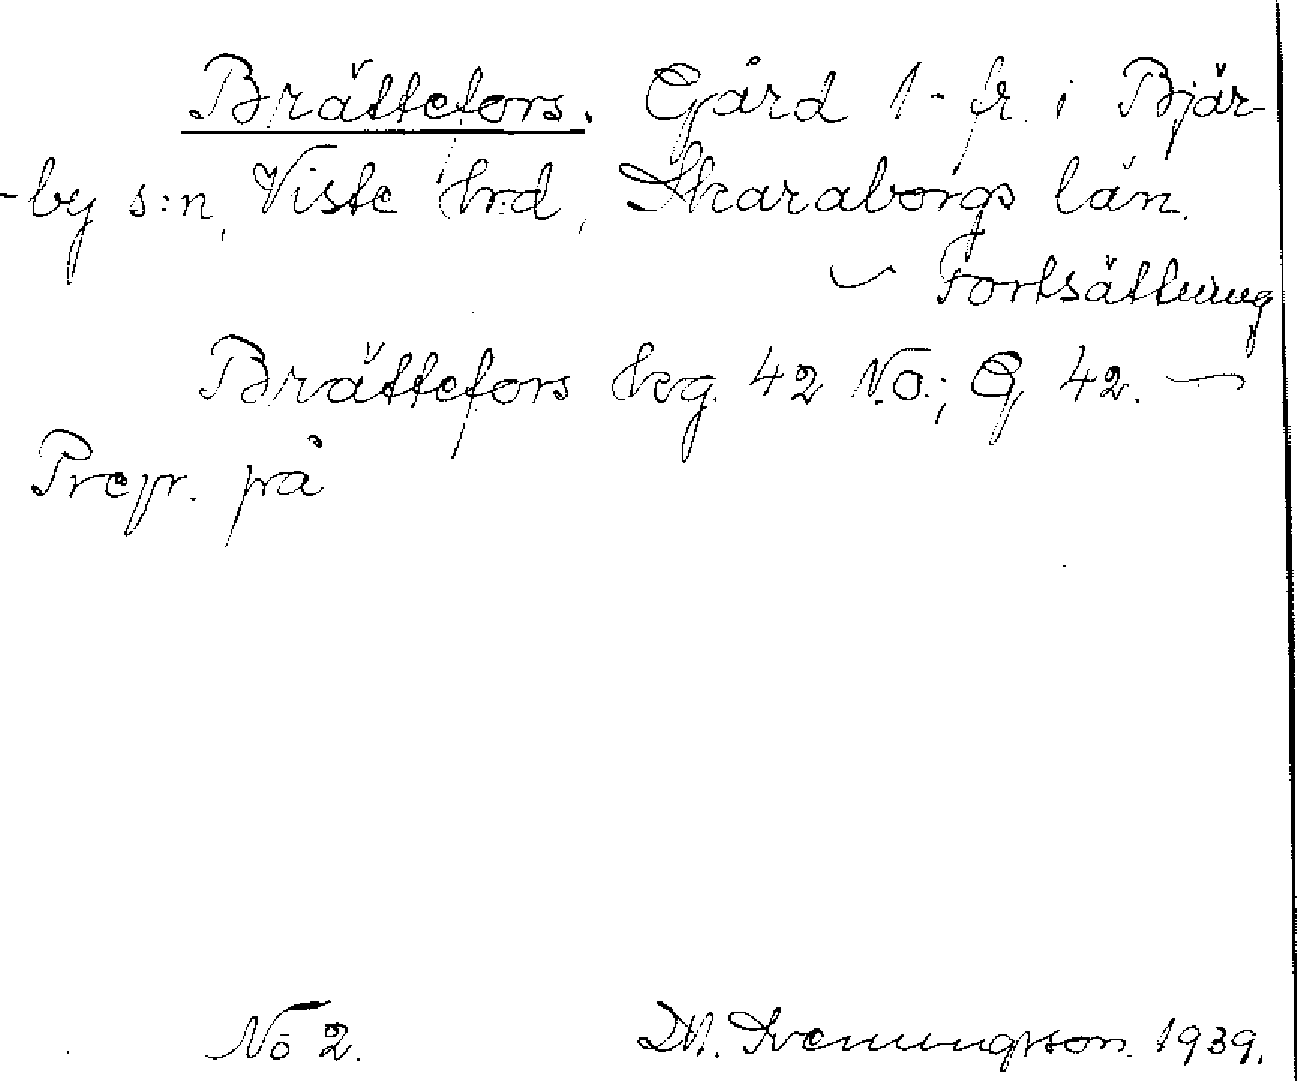 Brättefors. Gård 1-fr. i Bjär-
-by s:n, Viste hrd, Skaraborgs län.
Fortsättning
Brättefors Seg. 42 N.O.; G. 42. —
Prepr. på
No 2. M. Svenungsson. 1939.